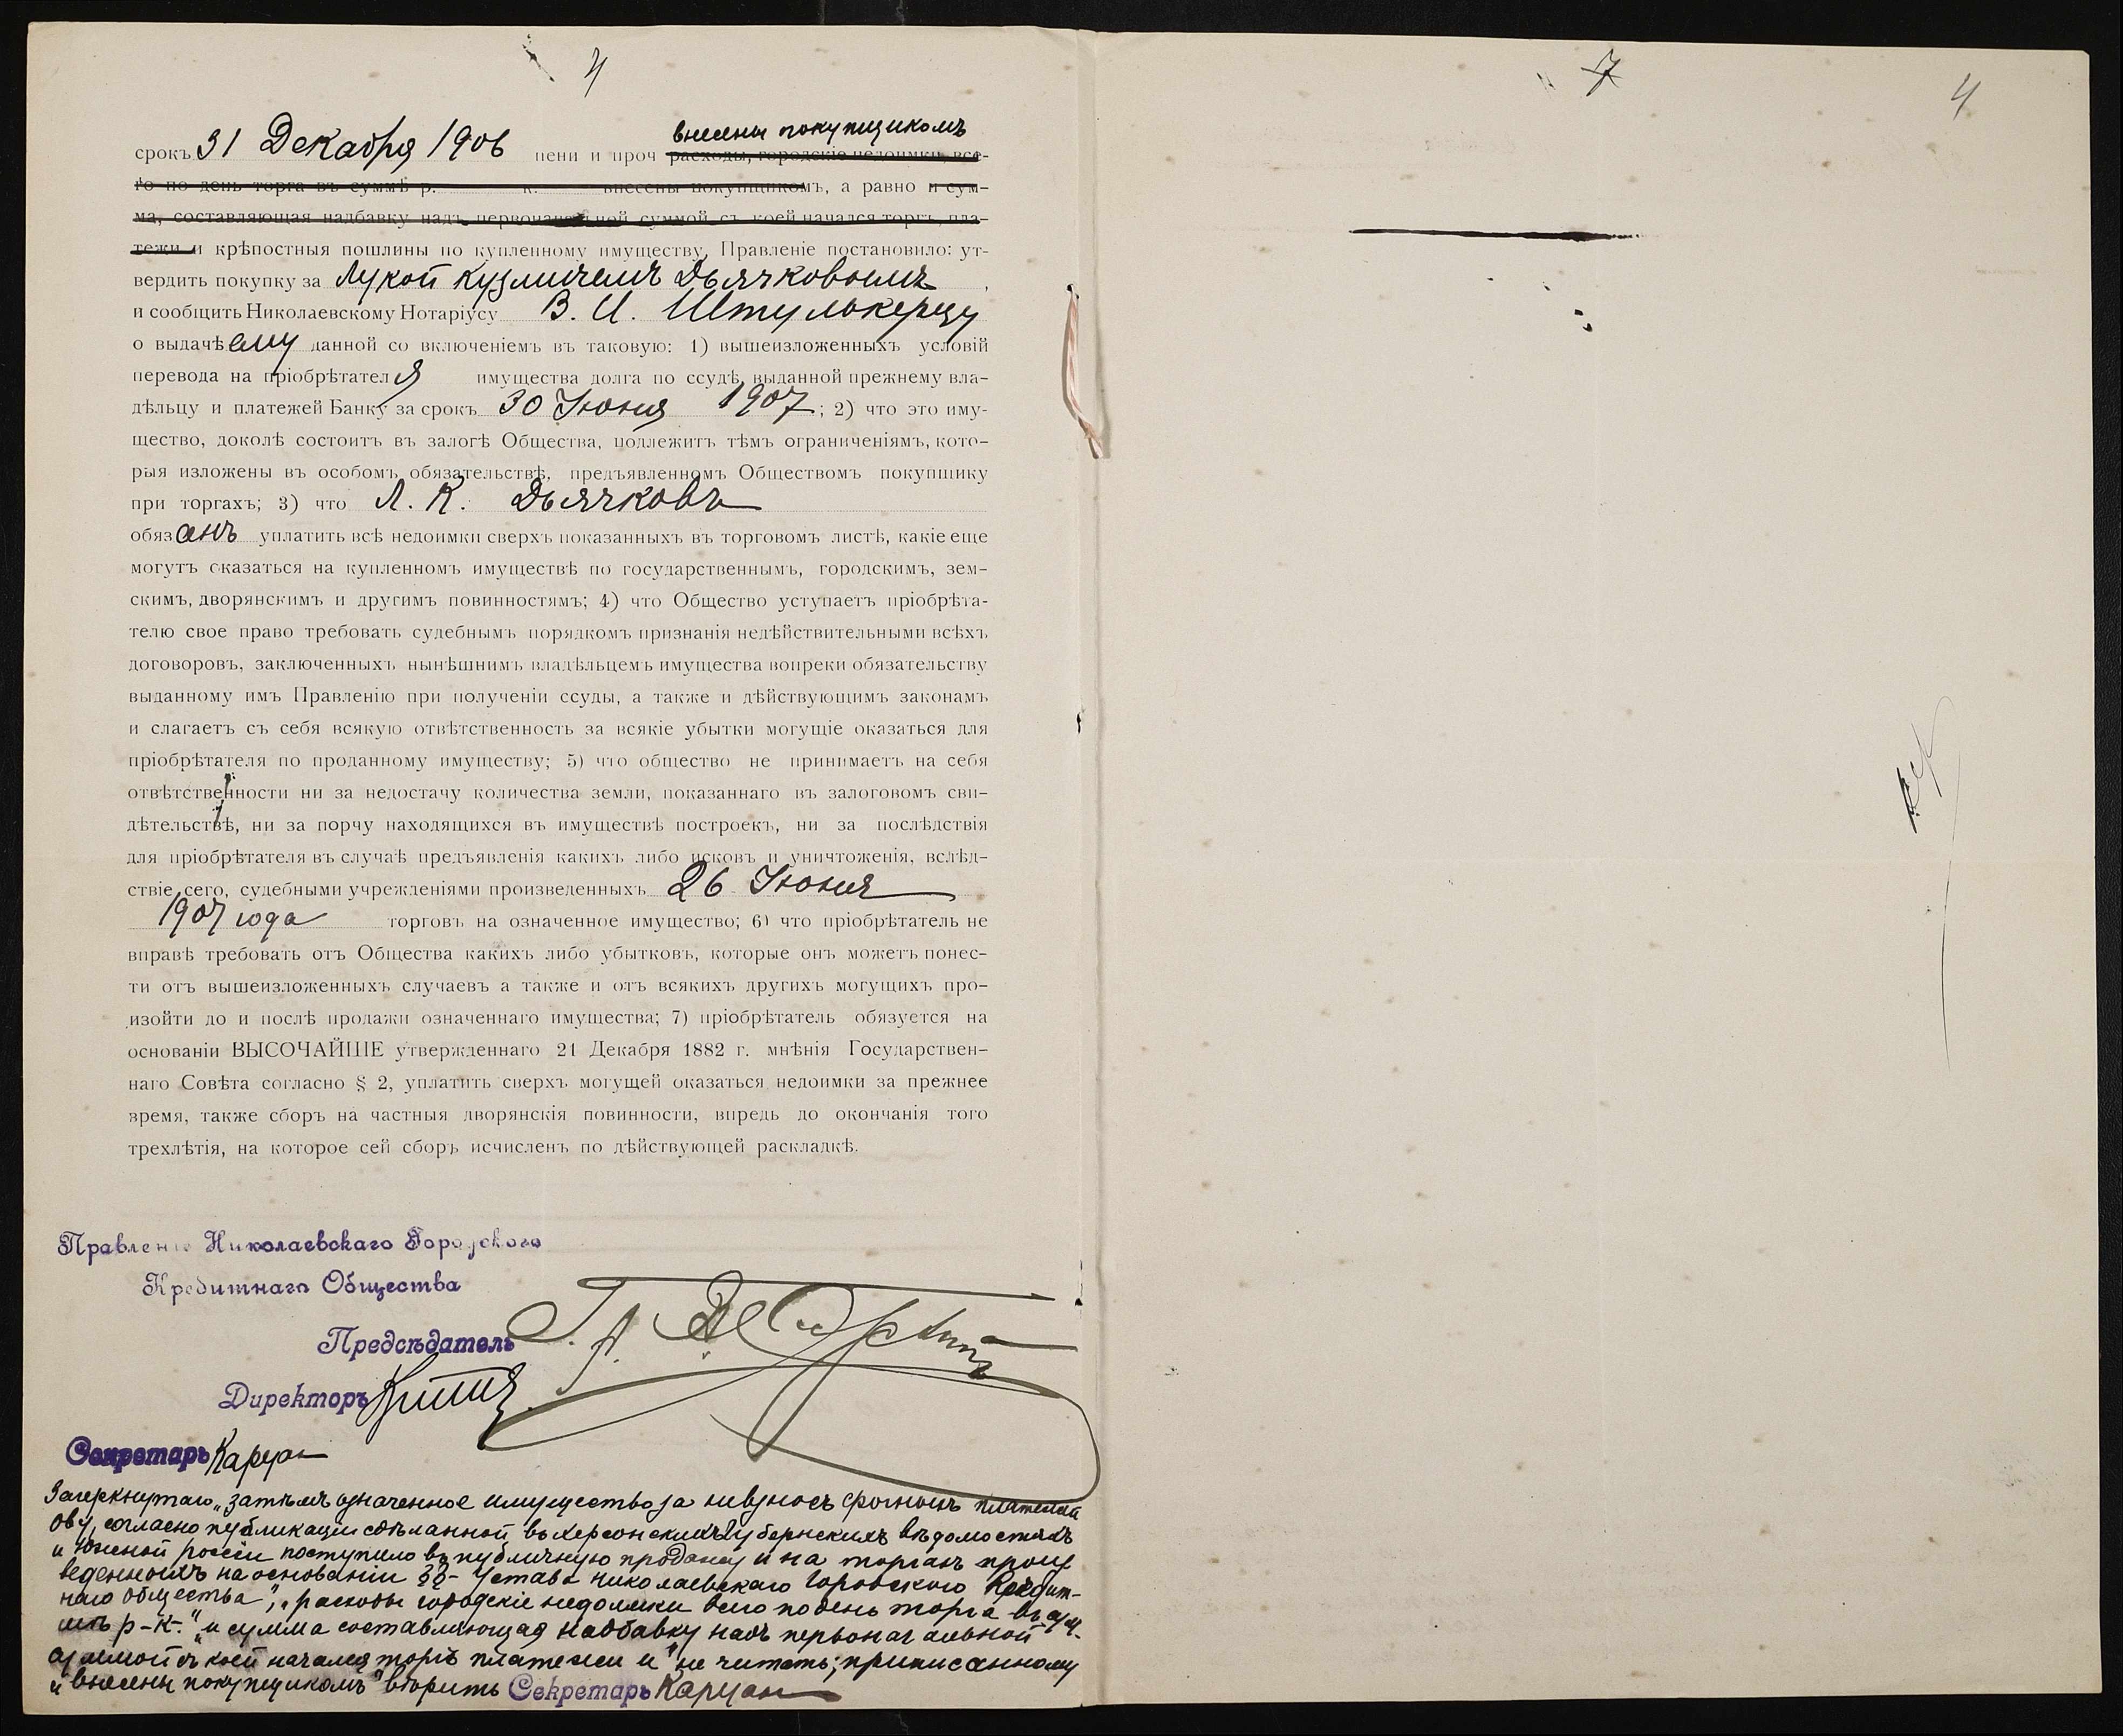 4
внесены покупщикомъ
срокъ 31 Декабря 1906 пени и проч расходы, городскіе недоимки, все-
го по день торга въ суммѣ р. к. внесены покупщикомъ, а равно и сум-
ма, составляющая надбавку надъ первоначальной суммой съ коей начался торгъ, пла-
тежи и крѣпостныя пошлины по купленному имуществу, Правленіе постановило: ут-
вердить покупку за Лукой Кузмичемъ Дьячковымъ,
и сообщить Николаевскому Нотаріусу В. И. Штулькерцу
о выдачѣ ему данной со включеніемъ въ таковую: 1) вышеизложенныхъ условій
перевода на пріобрѣтателя имущества долга по ссудѣ, выданной прежнему вла-
дѣльцу и платежей Банку за срокъ 30 Іюня 1907; 2) что это иму-
щество, доколѣ состоитъ въ залогѣ Общества, подлежитъ тѣмъ ограниченіямъ, кото-
рыя изложены въ особомъ обязательствѣ, предъявленномъ Обществомъ покупщику
при торгахъ; 3) что Л. К. Дьячковъ
обязанъ уплатить всѣ недоимки сверхъ показанныхъ въ торговомъ листѣ, какіе еще
могутъ оказаться на купленномъ имуществѣ по государственнымъ, городскимъ, зем-
скимъ, дворянскимъ и другимъ повинностямъ; 4) что Общество уступаетъ пріобрѣта-
телю свое право требовать судебнымъ порядкомъ признанія недѣйствительными всѣхъ
договоровъ, заключенныхъ нынѣшнимъ владѣльцемъ имущества вопреки обязательству
выданному имъ Правленію при полученіи ссуды, а также и дѣйствующимъ законамъ
и слагаетъ съ себя всякую отвѣтственность за всякіе убытки могущіе оказаться для
пріобрѣтателя по проданному имуществу; 5) что общество не принимаетъ на себя
отвѣтственности ни за недостачу количества земли, показаннаго въ залоговомъ сви-
дѣтельствѣ, ни за порчу находящихся въ имуществѣ построекъ, ни за послѣдствія
для пріобрѣтателя въ случаѣ предъявленія какихъ либо исковъ и уничтоженія, вслѣд-
ствіе сего, судебными учрежденіями произведенныхъ 26 Іюня
1907 года торговъ на означенное имущество; 6) что пріобрѣтатель не
вправѣ требовать отъ Общества какихъ либо убытковъ, которые онъ можетъ понес-
ти отъ вышеизложенныхъ случаевъ а также и отъ всякихъ другихъ могущихъ про-
изойти до и послѣ продажи означеннаго имущества; 7) пріобрѣтатель обязуется на
основаніи ВЫСОЧАЙШЕ утвержденнаго 21 Декабря 1882 г. мнѣнія Государствен-
наго Совѣта согласно § 2, уплатить сверхъ могущей оказаться недоимки за прежнее
время, также сборъ на частныя дворянскія повинности, впредь до окончанія того
трехлѣтія, на которое сей сборъ исчисленъ по дѣйствующей раскладкѣ.
Правленіе Николаевскаго Городского
Кредитнаго Общества
Предсѣдатель
Директоръ
Секретарь
Зачеркнутаго „затѣмъ означенное имущество за невзносъ срочныхъ платежей
О-ву, согласно публикаціи сдѣланной въ Херсонскихъ Губернскихъ вѣдомостяхъ
и Южной Россіи поступило въ публичную продажу и на торгахъ произ
веденныхъ на основаніи §§- Устава Николаевскаго Городского Кредит-
наго Общества", „расходы городскіе недоимки всего по день торга въ сум-
мѣ р-к-" „и сумма составляющая надбавку надъ первоначальной
суммой съ коей начался торгъ платежи и" не читать; приписанному
„внесены покупщикомъ" вѣрить Секретарь
7
4